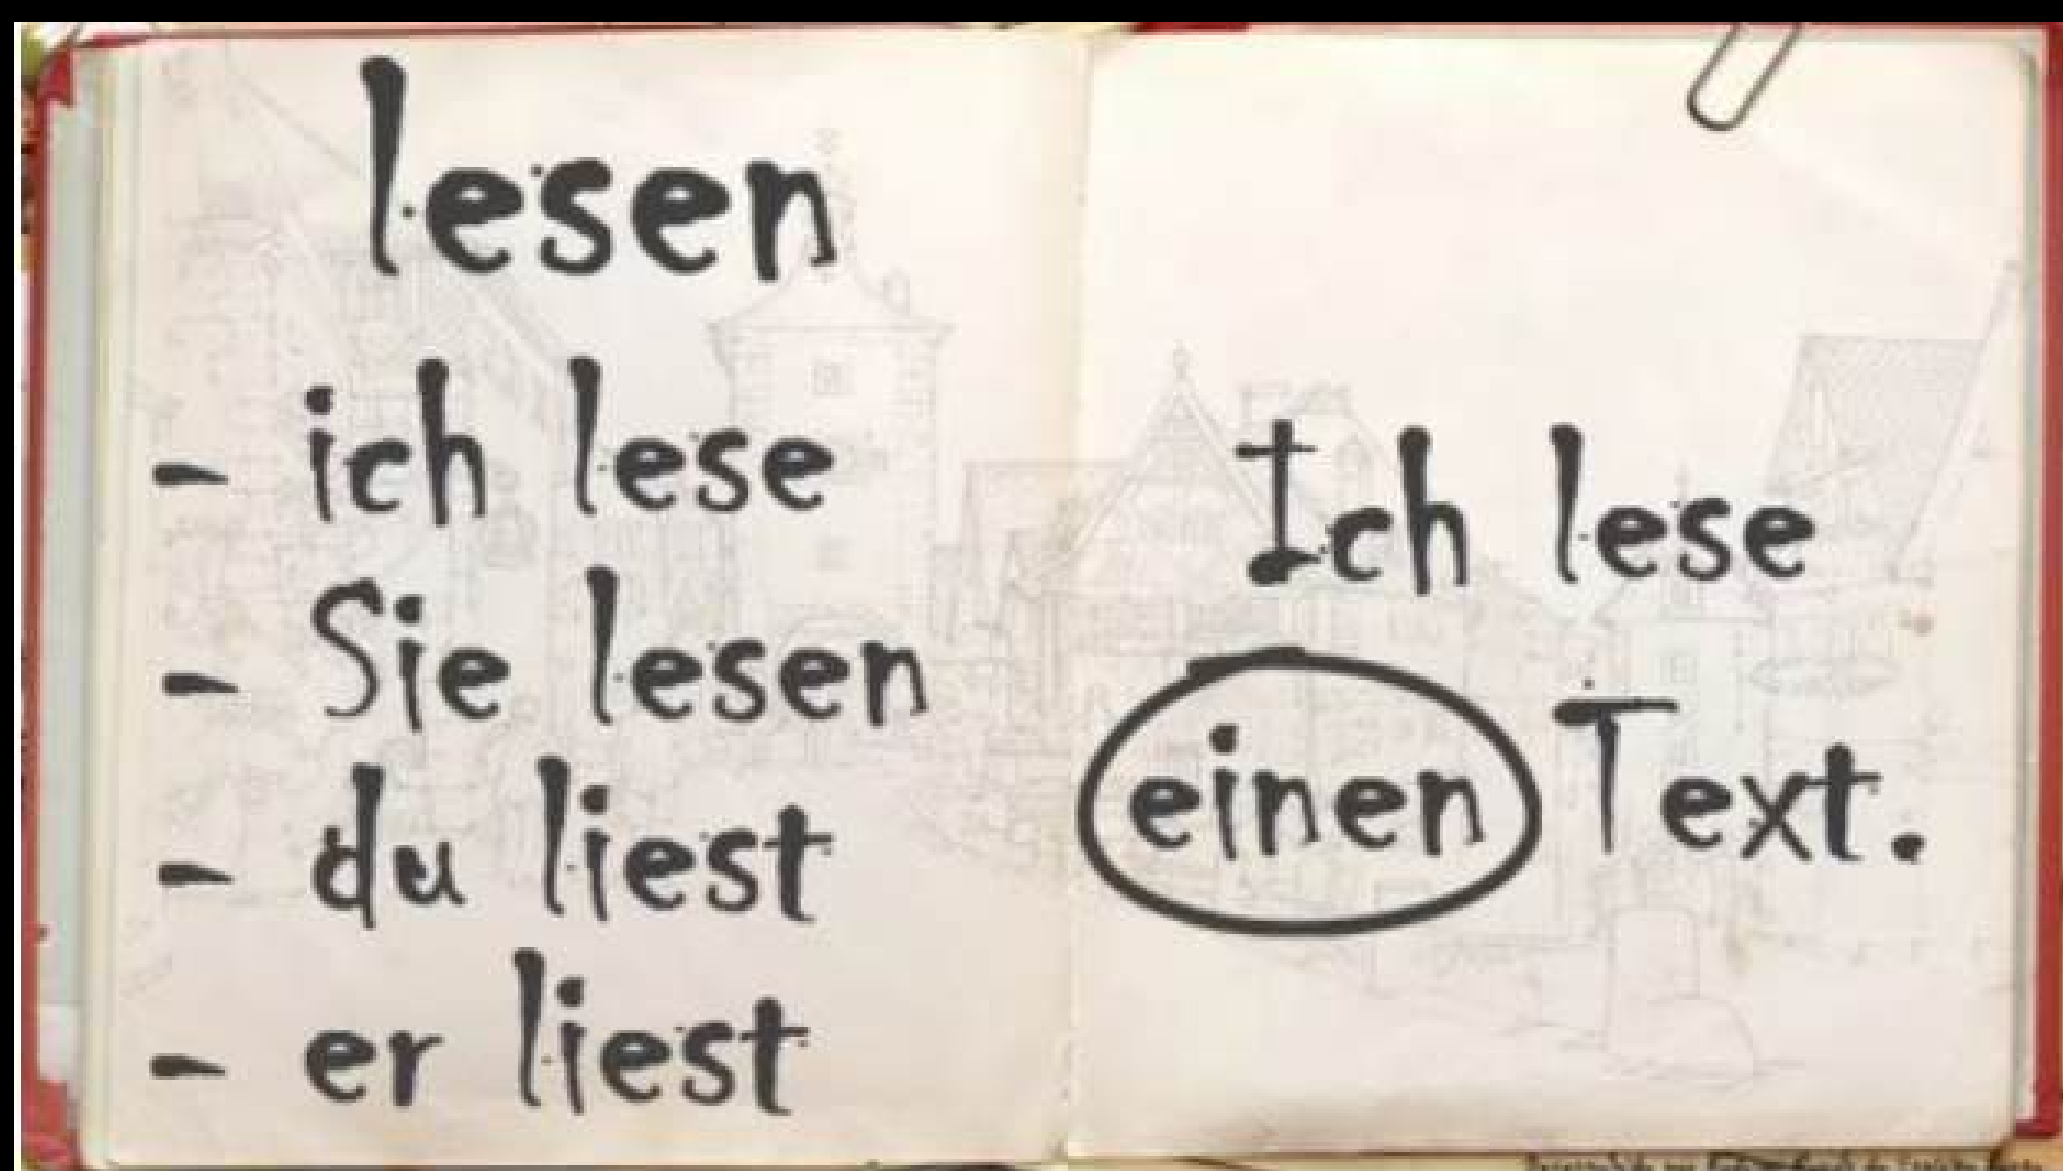 lesen
- ich lese
- Sie lesen
- du liest
- er liest
Ich lese
einen Text.